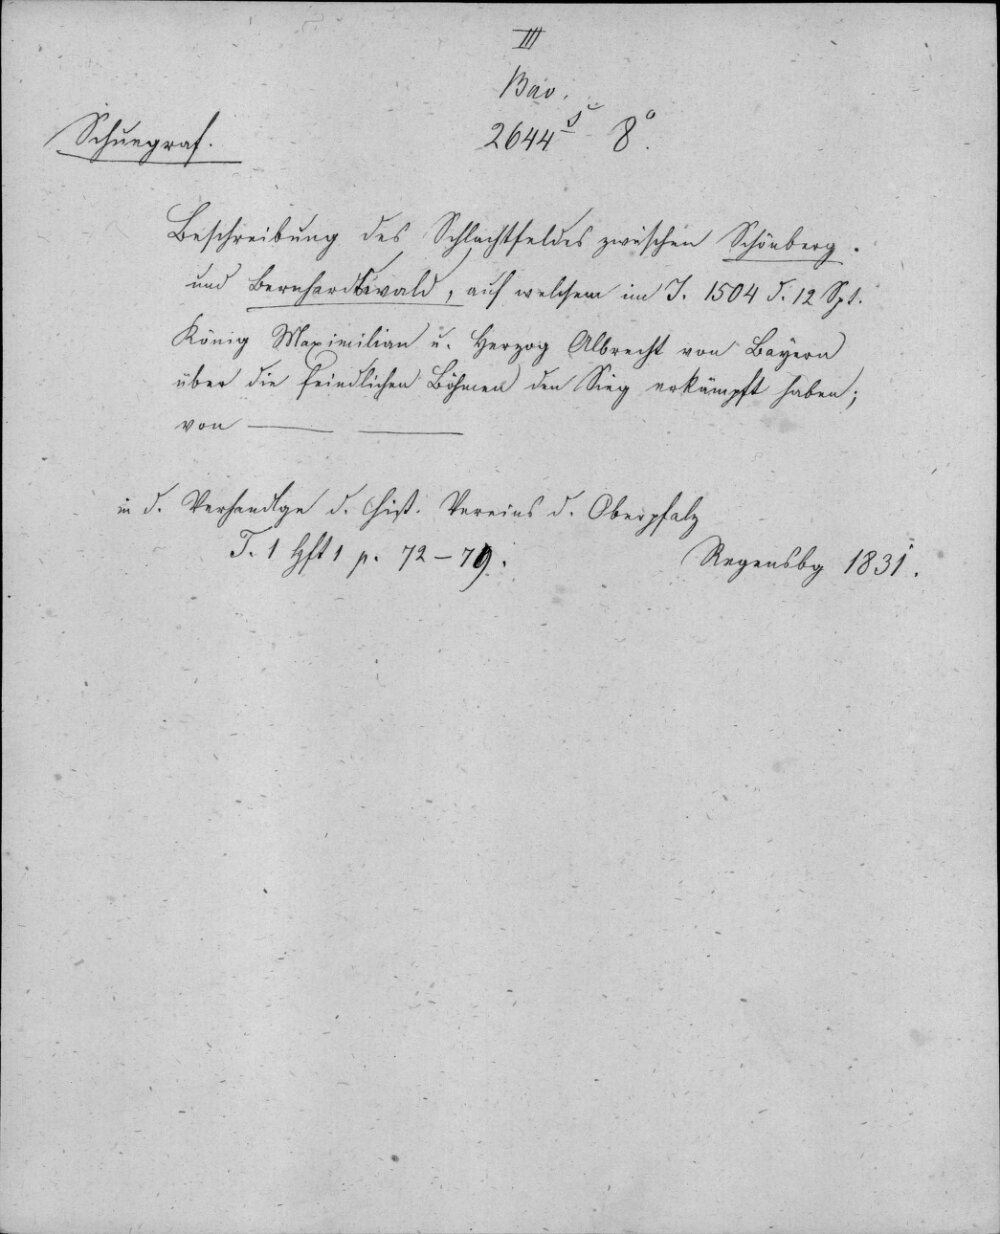 III
Bav.
2644 s 8°.
Schuegraf.
Beschreibung des Schlachtfeldes zwischen Schönberg.
und Bernhardswald, auf welchem im J. 1504 d. 12 Spt.
König Maximilian u. Herzog Albrecht von Bayern
über die feindlichen Böhmen den Sieg erkämpft haben;
von — —
in d. Verhandlgn d. hist. Vereins d. Oberpfalz
T. 1 Hft 1 p. 72–79.
Regensbg 1831.